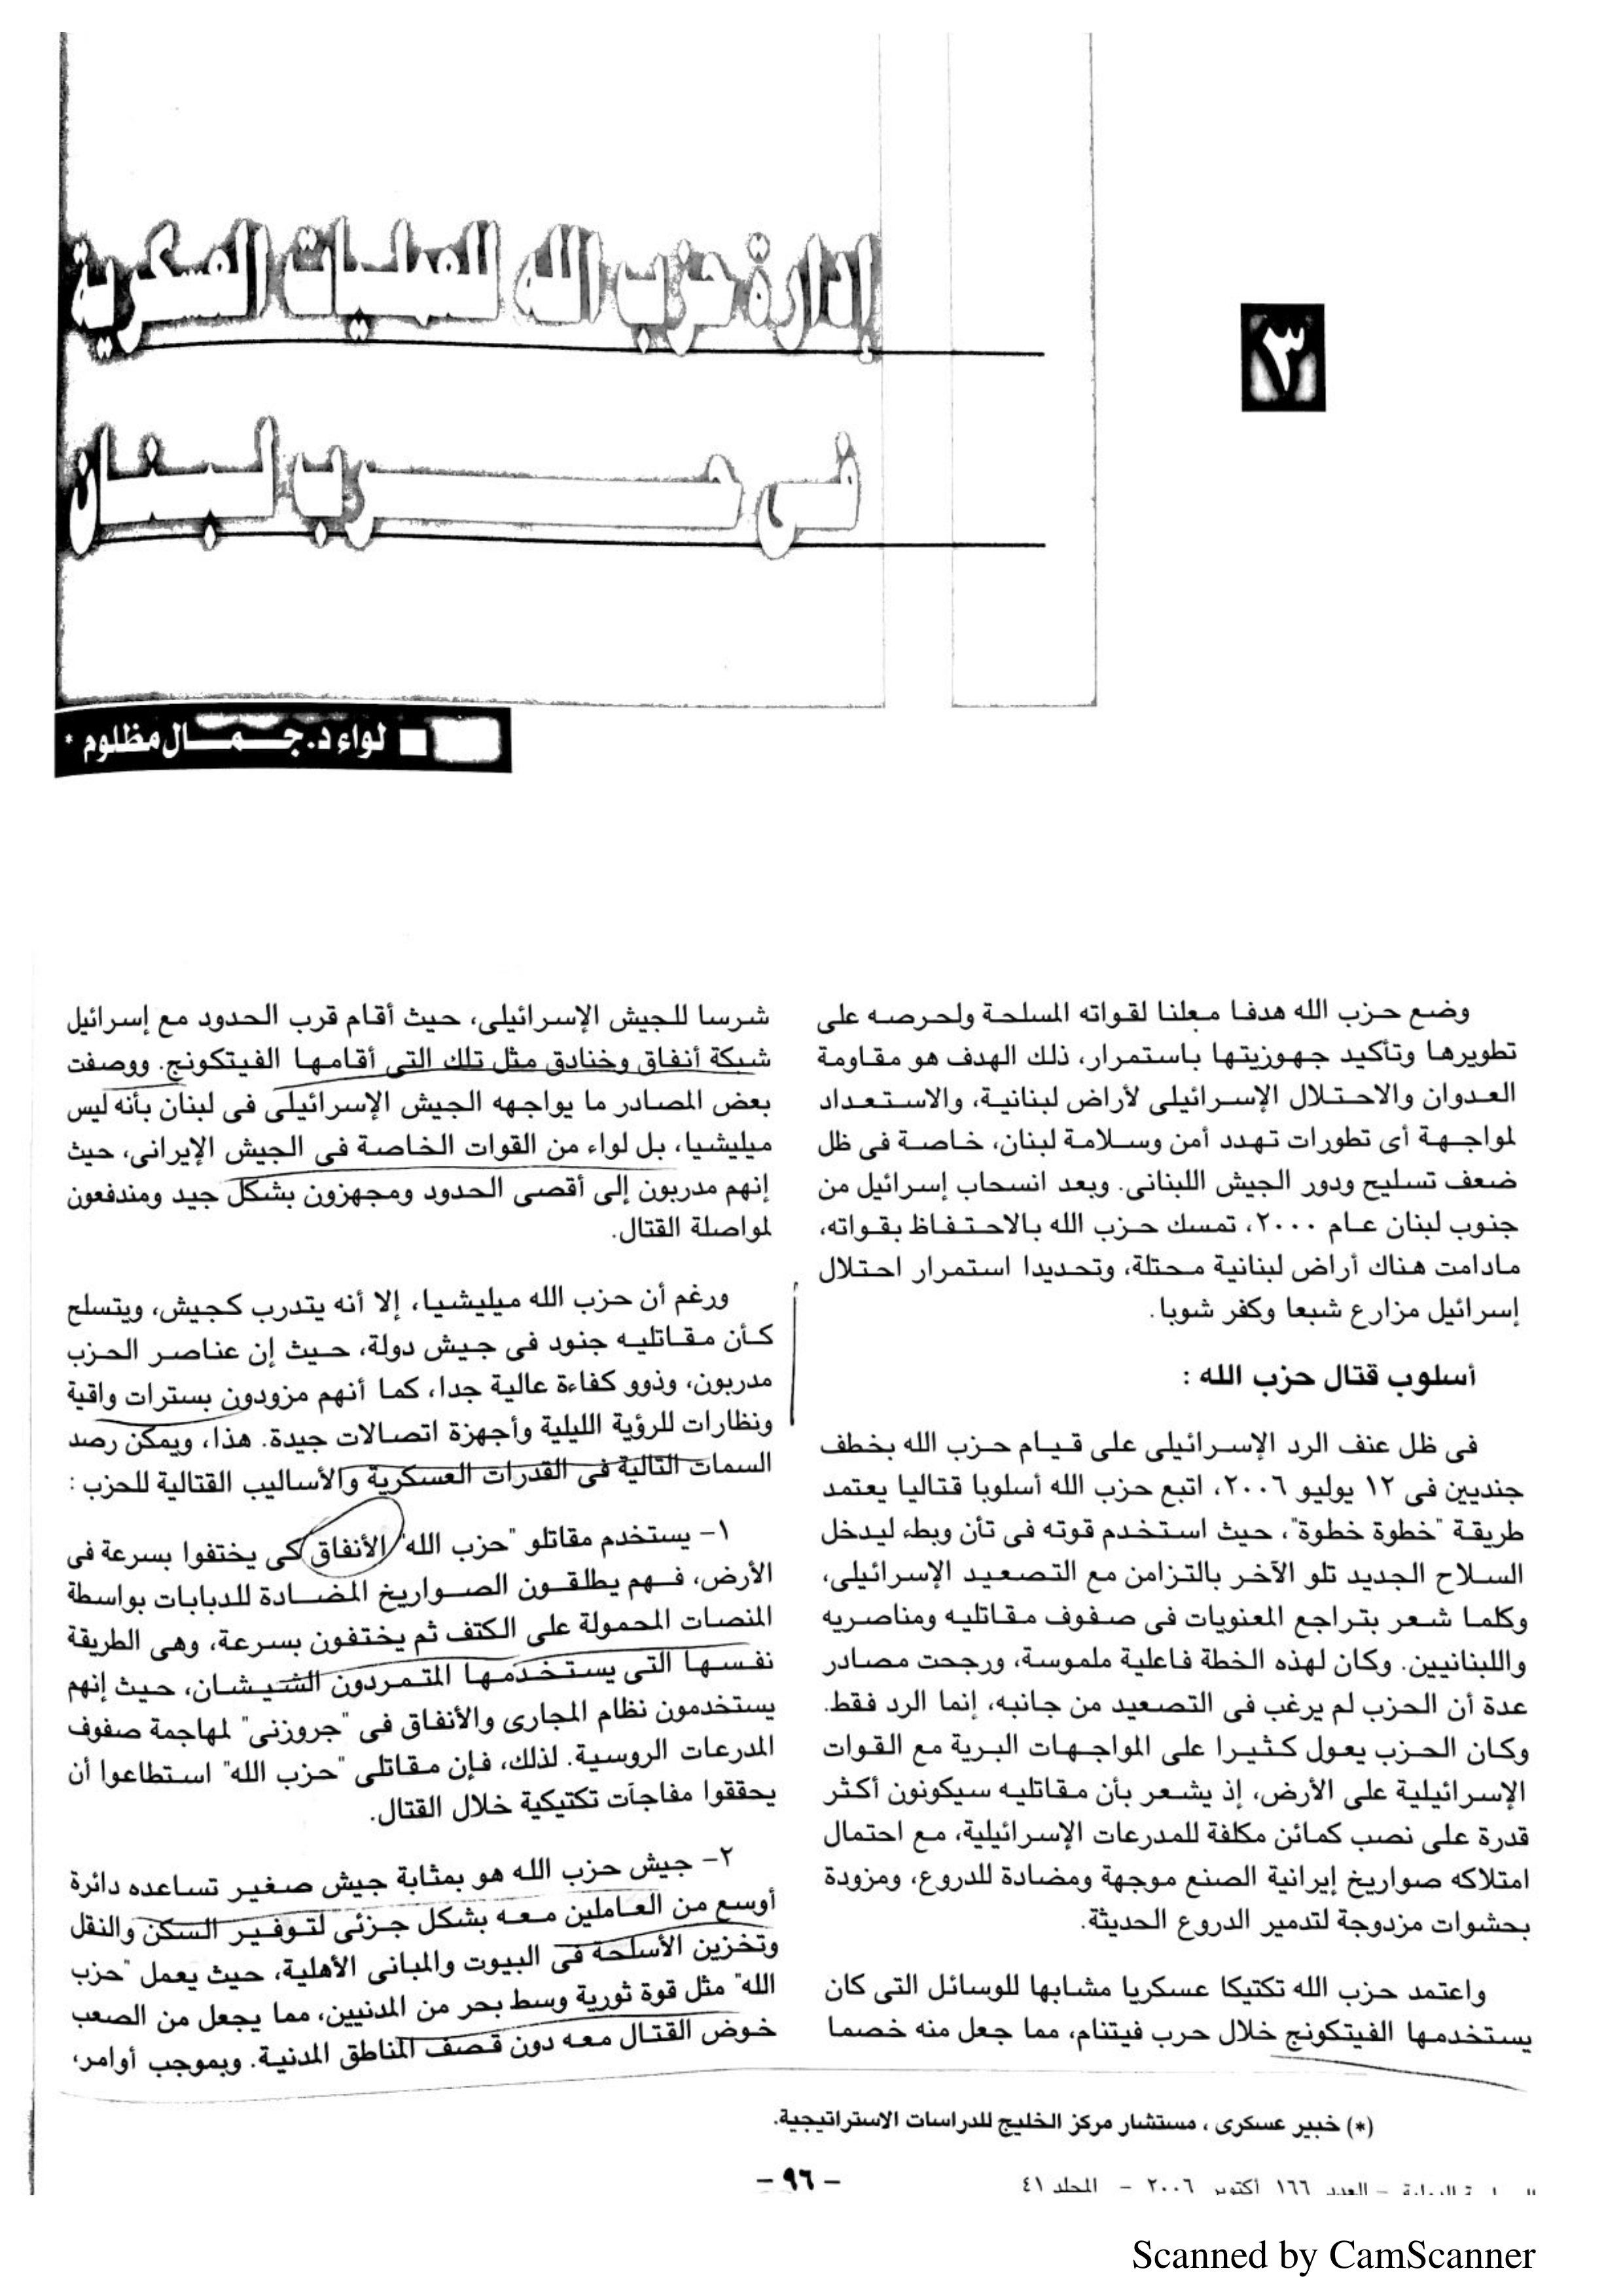 ٣
إدارة حزب الله للعمليات العسكرية
فى حرب لبنان
لواء د. جمال مظلوم *
وضع حزب الله هدفا معلنا لقواته المسلحة ولحرصه على
تطويرها وتأكيد جهوزيتها باستمرار، ذلك الهدف هو مقاومة
العدوان والاحتلال الإسرائيلى لأراض لبنانية، والاستعداد
لمواجهة أى تطورات تهدد أمن وسلامة لبنان، خاصة فى ظل
ضعف تسليح ودور الجيش اللبنانى. وبعد انسحاب إسرائيل من
جنوب لبنان عام ٢٠٠٠، تمسك حزب الله بالاحتفاظ بقواته،
مادامت هناك أراض لبنانية محتلة، وتحديدا استمرار احتلال
إسرائيل مزارع شبعا وكفر شوبا.
أسلوب قتال حزب الله :
فى ظل عنف الرد الإسرائيلى على قيام حزب الله بخطف
جنديين فى ١٢ يوليو ٢٠٠٦، اتبع حزب الله أسلوبا قتاليا يعتمد
طريقة "خطوة خطوة"، حيث استخدم قوته فى تأن وبطء ليدخل
السلاح الجديد تلو الآخر بالتزامن مع التصعيد الإسرائيلى،
وكلما شعر بتراجع المعنويات فى صفوف مقاتليه ومناصريه
واللبنانيين. وكان لهذه الخطة فاعلية ملموسة، ورجحت مصادر
عدة أن الحزب لم يرغب فى التصعيد من جانبه، إنما الرد فقط.
وكان الحزب يعول كثيرا على المواجهات البرية مع القوات
الإسرائيلية على الأرض، إذ يشعر بأن مقاتليه سيكونون أكثر
قدرة على نصب كمائن مكلفة للمدرعات الإسرائيلية، مع احتمال
امتلاكه صواريخ إيرانية الصنع موجهة ومضادة للدروع، ومزودة
بحشوات مزدوجة لتدمير الدروع الحديثة.
واعتمد حزب الله تكتيكا عسكريا مشابها للوسائل التى كان
يستخدمها الفيتكونج خلال حرب فيتنام، مما جعل منه خصما
شرسا للجيش الإسرائيلى، حيث أقام قرب الحدود مع إسرائيل
شبكة أنفاق وخنادق مثل تلك التى أقامها الفيتكونج. ووصفت
بعض المصادر ما يواجهه الجيش الإسرائيلى فى لبنان بأنه ليس
ميليشيا، بل لواء من القوات الخاصة فى الجيش الإيرانى، حيث
إنهم مدربون إلى أقصى الحدود ومجهزون بشكل جيد ومندفعون
لمواصلة القتال.
ورغم أن حزب الله ميليشيا، إلا أنه يتدرب كجيش، ويتسلح
كأن مقاتليه جنود فى جيش دولة، حيث إن عناصر الحزب
مدربون، وذوو كفاءة عالية جدا، كما أنهم مزودون بسترات واقية
ونظارات للرؤية الليلية وأجهزة اتصالات جيدة. هذا، ويمكن رصد
السمات التالية فى القدرات العسكرية والأساليب القتالية للحزب :
١- يستخدم مقاتلو "حزب الله" الأنفاق كى يختفوا بسرعة فى
الأرض، فهم يطلقون الصواريخ المضادة للدبابات بواسطة
المنصات المحمولة على الكتف ثم يختفون بسرعة، وهى الطريقة
نفسها التى يستخدمها المتمردون الشيشان، حيث إنهم
يستخدمون نظام المجارى والأنفاق فى "جروزنى" لمهاجمة صفوف
المدرعات الروسية. لذلك، فإن مقاتلى "حزب الله" استطاعوا أن
يحققوا مفاجآت تكتيكية خلال القتال.
٢- جيش حزب الله هو بمثابة جيش صغير تساعده دائرة
أوسع من العاملين معه بشكل جزئى لتوفير السكن والنقل
وتخزين الأسلحة فى البيوت والمبانى الأهلية، حيث يعمل "حزب
الله" مثل قوة ثورية وسط بحر من المدنيين، مما يجعل من الصعب
خوض القتال معه دون قصف المناطق المدنية. وبموجب أوامر،
(*) خبير عسكرى ، مستشار مركز الخليج للدراسات الاستراتيجية.
الدولية - العدد ١٦٦ أكتوبر ٢٠٠٦ - المجلد ٤١
- ٩٦ -
Scanned by CamScanner